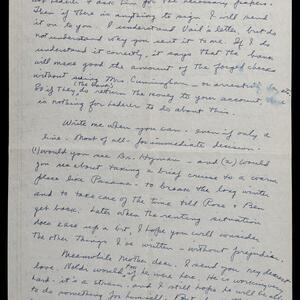 not Lederer. I ask him for the necessary papers.
Then if there is anything to sign I will send
it on to you. I understand Vail's letter, but do
not understand why you sent it to me. If I do
understand it correctly, it says that the bank
will make good the amount of the forged checks
without suing Mrs. Cunningham - or arresting
(The Bank)
So if they do return the money to your account,
is nothing for Lederer to do about this.
Write me when you can - even if only a
line. Most of all - for immediate decision.
(1) would you see Dr. Hyman - and (2) would
you see about taking a brief cruise to a warm
place like Panama - to break the long winter
and to take care of the time till Rose & Ben
get back. Later when the renting situation
does ease up a bit, I hope you will consider
the other things I've written - without prejudice.
Meanwhile Mother dear, I send you my dearest
love. if he were here. He is worrying
- it's a strain - and I still hope he will
to do something for himself.